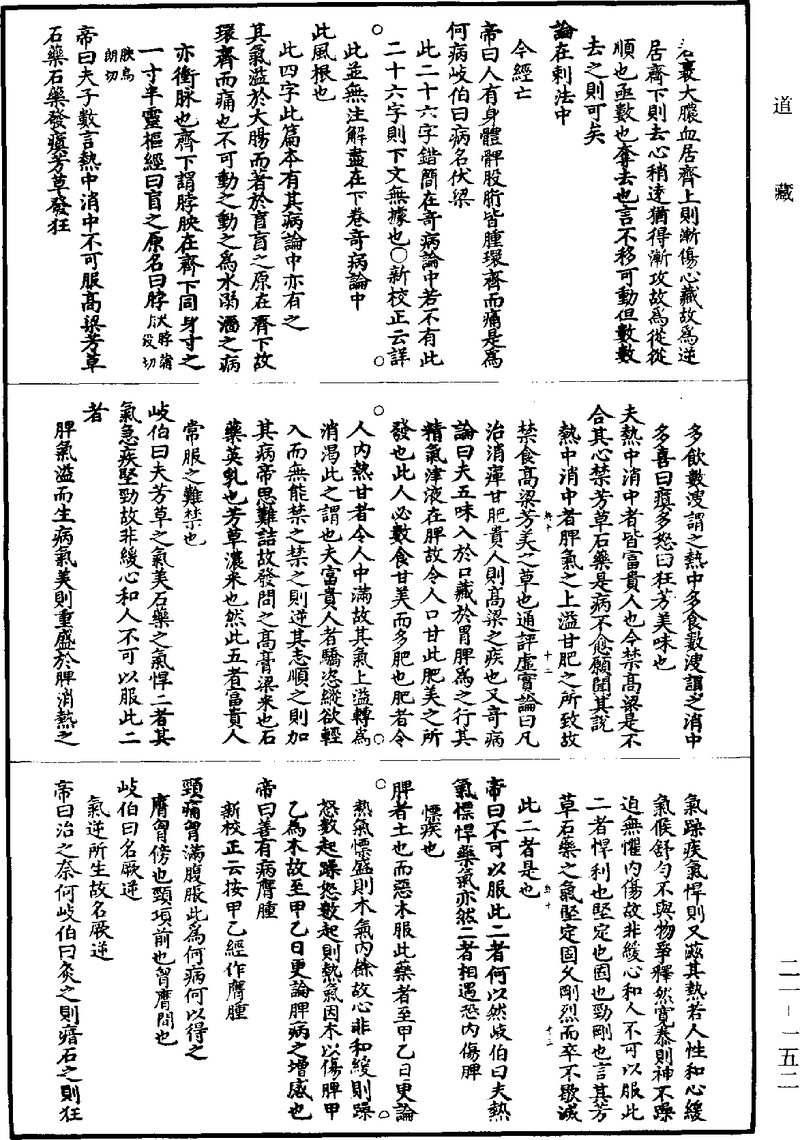 道藏
名裹大膿血居齊上則漸傷心藏故為逆
居齊下則去心稍遠猶得漸攻故為從從
順也亟數也奪去也言不移可動但數數
去之則可矣
論在刺法中
今經亡
帝曰人有身體髀股䯒皆腫環齊而痛是為
何病岐伯曰病名伏梁
此二十六字錯簡在奇病論中若不有此
二十六字則下文無據也○新校正云詳
此並無注解盡在下卷奇病論中
此風根也
此四字此篇本有其病論中亦有之
其氣溢於大腸而著於肓肓之原在齊下故
環齊而痛也不可動之動之為水溺濇之病
亦衝脉也齊下謂脖胦在齊下同身寸之
一寸半靈樞經曰肓之原名曰脖
胦烏朗切
帝曰夫子數言熱中消中不可服高梁芳草
石藥石藥發瘨芳草發狂
多飲數溲謂之熱中多食數溲謂之消中
多喜曰瘨多怒曰狂芳美味也
夫熱中消中者皆富貴人也今禁高梁是不
合其心禁芳草石藥是病不愈願聞其說
熱中消中者脾氣之上溢甘肥之所致故
禁食高梁芳美之草也通評虛實論曰凡
治消癉甘肥貴人則高梁之疾也又奇病
論曰夫五味入於口藏於胃脾為之行其
精氣津液在脾故令人口甘此肥美之所
發也此人必數食甘美而多肥也肥者令
人內熱甘者令人中滿故其氣上溢轉為
消渴此之謂也夫富貴人者驕恣縱欲輕
人而無能禁之禁之則逆其志順之則加
其病帝思難詰故發問之高膏梁米也石
藥英乳也芳草濃米也然此五者富貴人
常服之難禁也
岐伯曰夫芳草之氣美石藥之氣悍二者其
氣急疾堅勁故非緩心和人不可以服此二
者
脾氣溢而生病氣美則重盛於脾消熱之
氣躁疾氣悍則又滋其熱若人性和心緩
氣候舒勻不與物爭釋然寬泰則神不躁
迫無懼內傷故非緩心和人不可以服此
二者悍利也堅定也固也勁剛也言其芳
草石藥之氣堅定固久剛烈而卒不歇滅
此二者是也
帝曰不可以服此二者何以然岐伯曰夫熱
氣慓悍藥氣亦然二者相遇恐內傷脾
慓疾也
脾者土也而惡木服此藥者至甲乙日更論
熱氣慓盛則木氣內餘故心非和緩則躁
怒數起躁怒數起則熱氣因木以傷脾甲
乙為木故至甲乙日更論脾病之增減也
帝曰善有病膺腫
新校正云按甲乙經作膺腫
頸痛胷滿腹脹此為何病何以得之
膺胷傍也頸項前也胷膺間也
岐伯曰名厥逆
氣逆所生故名厥逆
帝曰治之奈何岐伯曰灸之則瘖石之則狂
二一－一五二